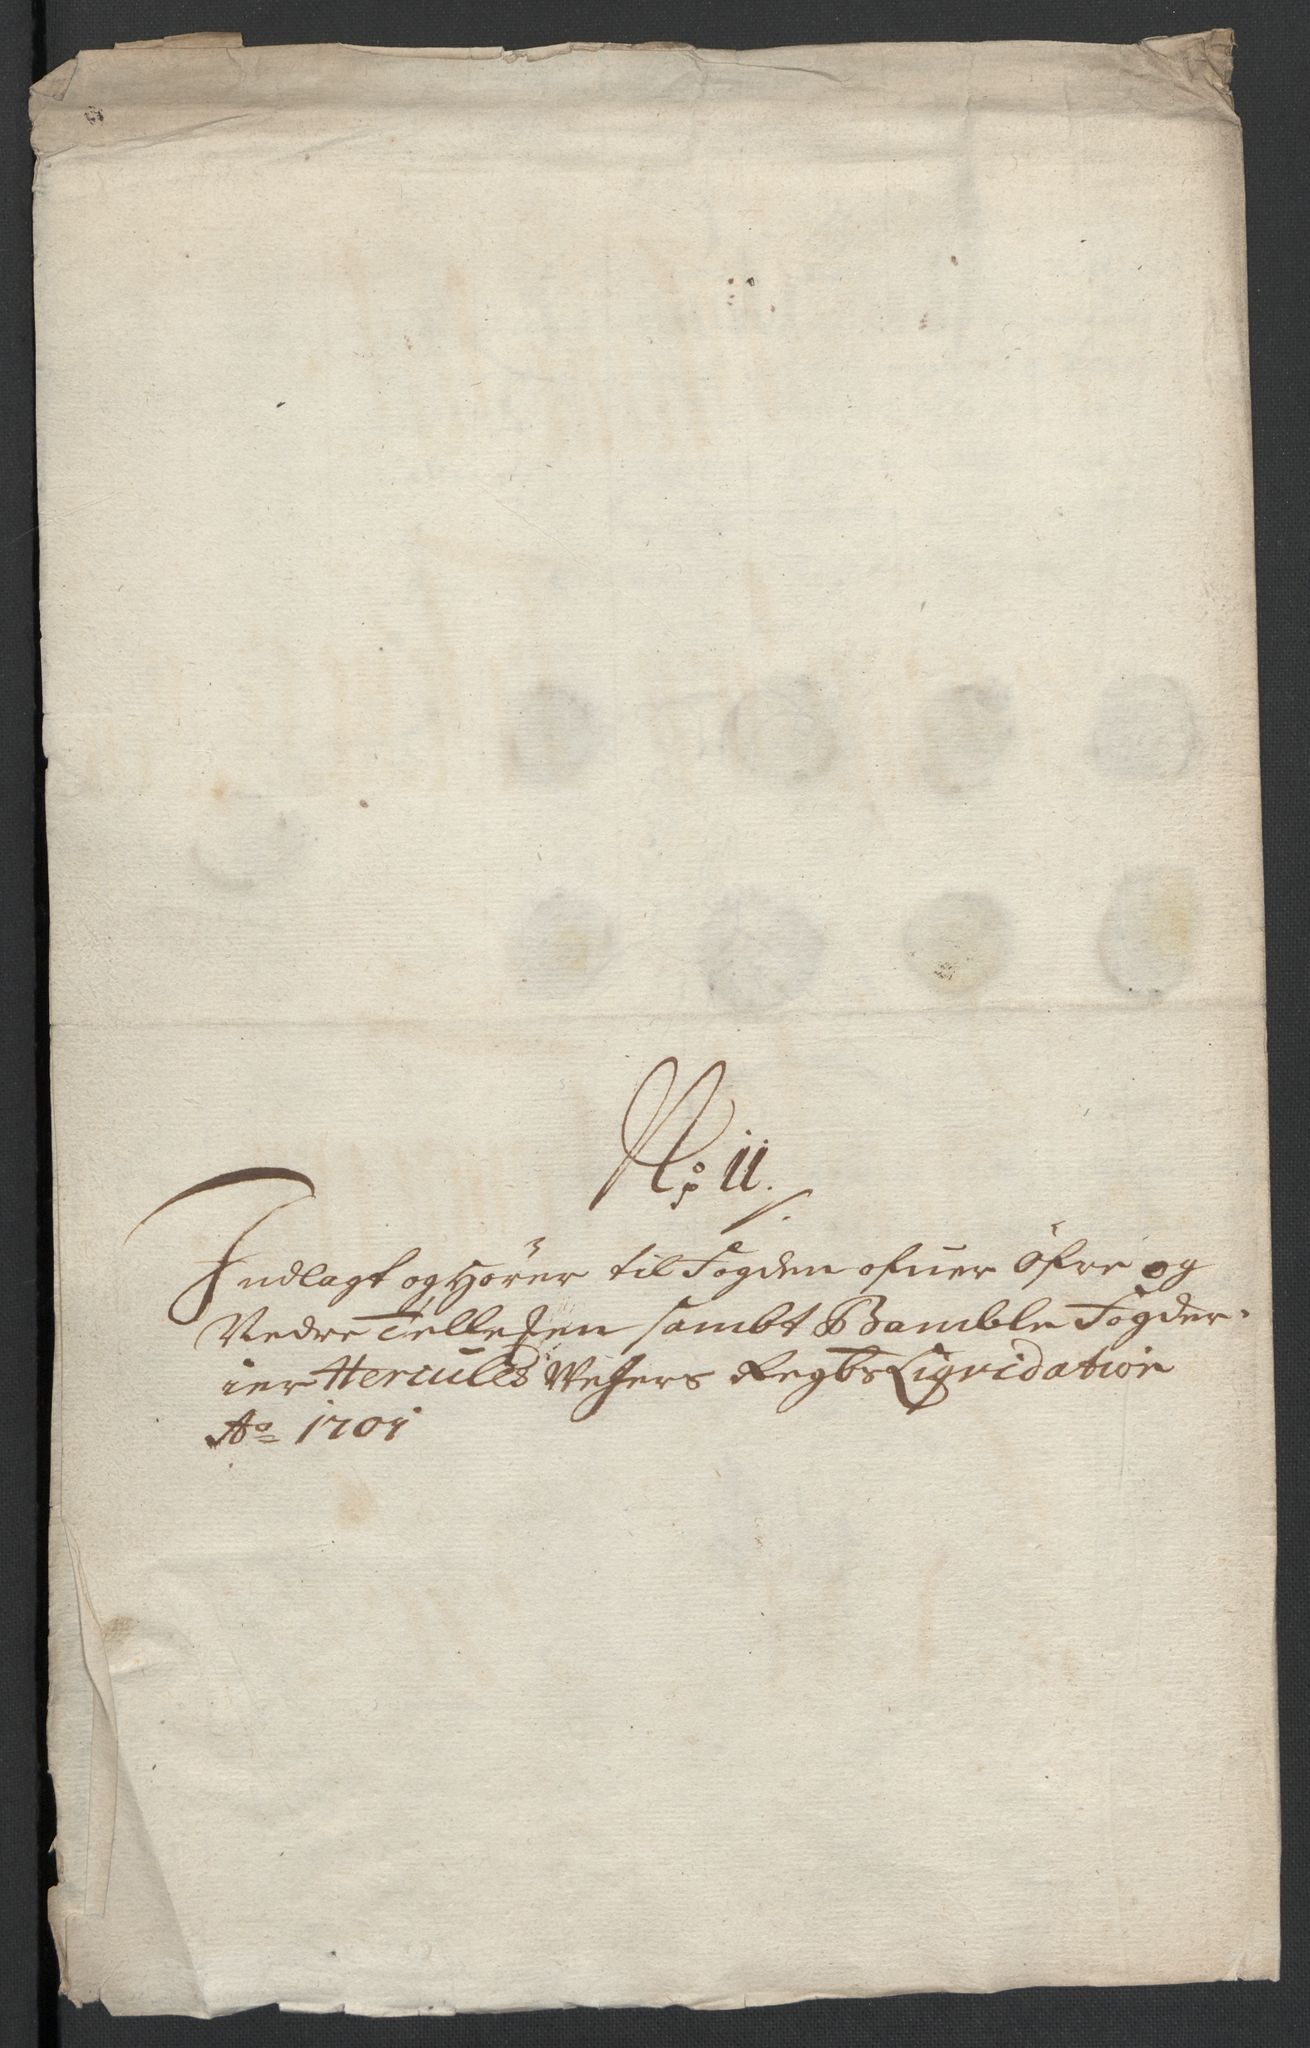 No 11.
Indlagt og Hörer til Fogden ofuer Öfre og
Nedre Tellemen sambt Bamble Fogder-
ier Hercules Weyers Regbs Liqvidation
Ao 1701